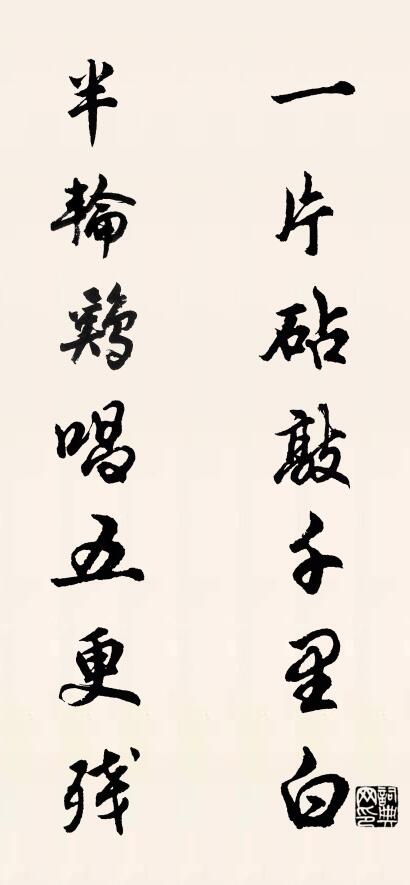 一片砧敲千里白
半輪鷄唱五更残
詞典網印